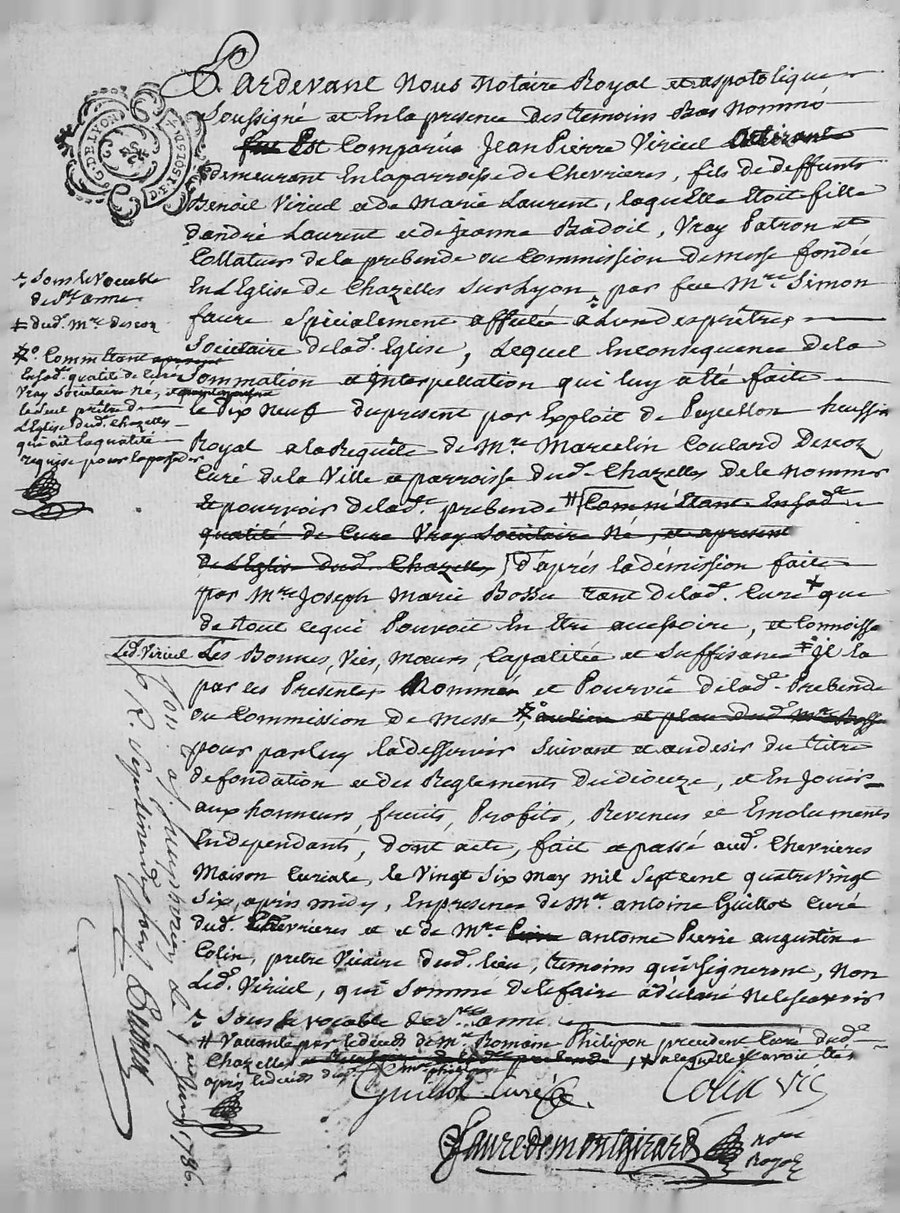 G. DE LYON
Pardevant Nous Notaire Royal et aspotolique
Soussigné et En la presence des temoins Bas Nommé
fut Est Comparúe Jean Pierre Viricel
demeurant En la parroisse de Chevrieres, fils de deffunts
Benoit Viricel et de Marie Laurent, laquelle étoit fille
d'andré Laurent et de jeanne Badoil, Vray Patron et
Collateur de la prebende ou Commission de messe fondée
En L'Eglise de Chazelles sur Lyon, par feu Mre. Simon
faure Spécialement affectée a L'un des prétres
Societaire de lad. Eglise, Lequel En consequence de la
Sommation et Interpellation qui luy a été faite
le dix Neuf du present par Exploit de Peycellon huissier
Royal a la Requête de Mre. Marcelin Coulard Descoz
Curé de la Ville et parroisse dud. Chazelles de le Nommer
et pourvoir de lad. prebende # Comméttant En sad.
qualité de Curé Vray Societaire Né, et apresent
de L'Eglise dud. Chazelles d'aprés la démission faite
par Mre Joseph Marie Bossu tant de lad. Cure + que
de tout ce qui Pouvoit En étre accessoire, et Connoisse
Led. Viricel Les Bonnes, Vies, Mœurs, Capacitée et Suffisance Il la
par ces Presentes Nommée et Pourvûe de lad. Prebende
ou Commission de Messe, au lieu et place dud. Mre Bossu
pour par luy la desservir Suivant et au desir du titre
de fondation et des Reglements du Dioceze, et En Jouir
aux honneurs, fruits, Profits, Revenus et Emoluments
En dependants, dont acte, fait et passé aud. Chevrieres
Maison Curiale, le Vingt Six May Mil Sept Cent quatre Vingt
Six, aprés midy, En presence de Mre. antoine Guillot Curé
dud. Chevrieres et et de Mre antoine Pierre augustin
Colin, prétre Vicaire dud. lieu, temoins qui signeront, Non
Led. Viricel, qui Sommé de le faire a déclaré Ne le scavoir
Sous le vocable de Ste anne
# Vacante par le décés de Mre. Romain Philipon precedent Curé dud.
Chazelles, # a laquelle il avoit été
aprés le décés dud. Mre philipon
Guillot Curé
Colin vic
Fauredemontgirard
Nore
Royal
Sous le Vocable
de Ste anne
# dud. Mre descoz
Commettant
En sad. qualité de Curé
Vray Societaire Né,
le Seul prétre de
L'Eglise dud. Chazelles
qui ait la qualité
requise pour la posseder